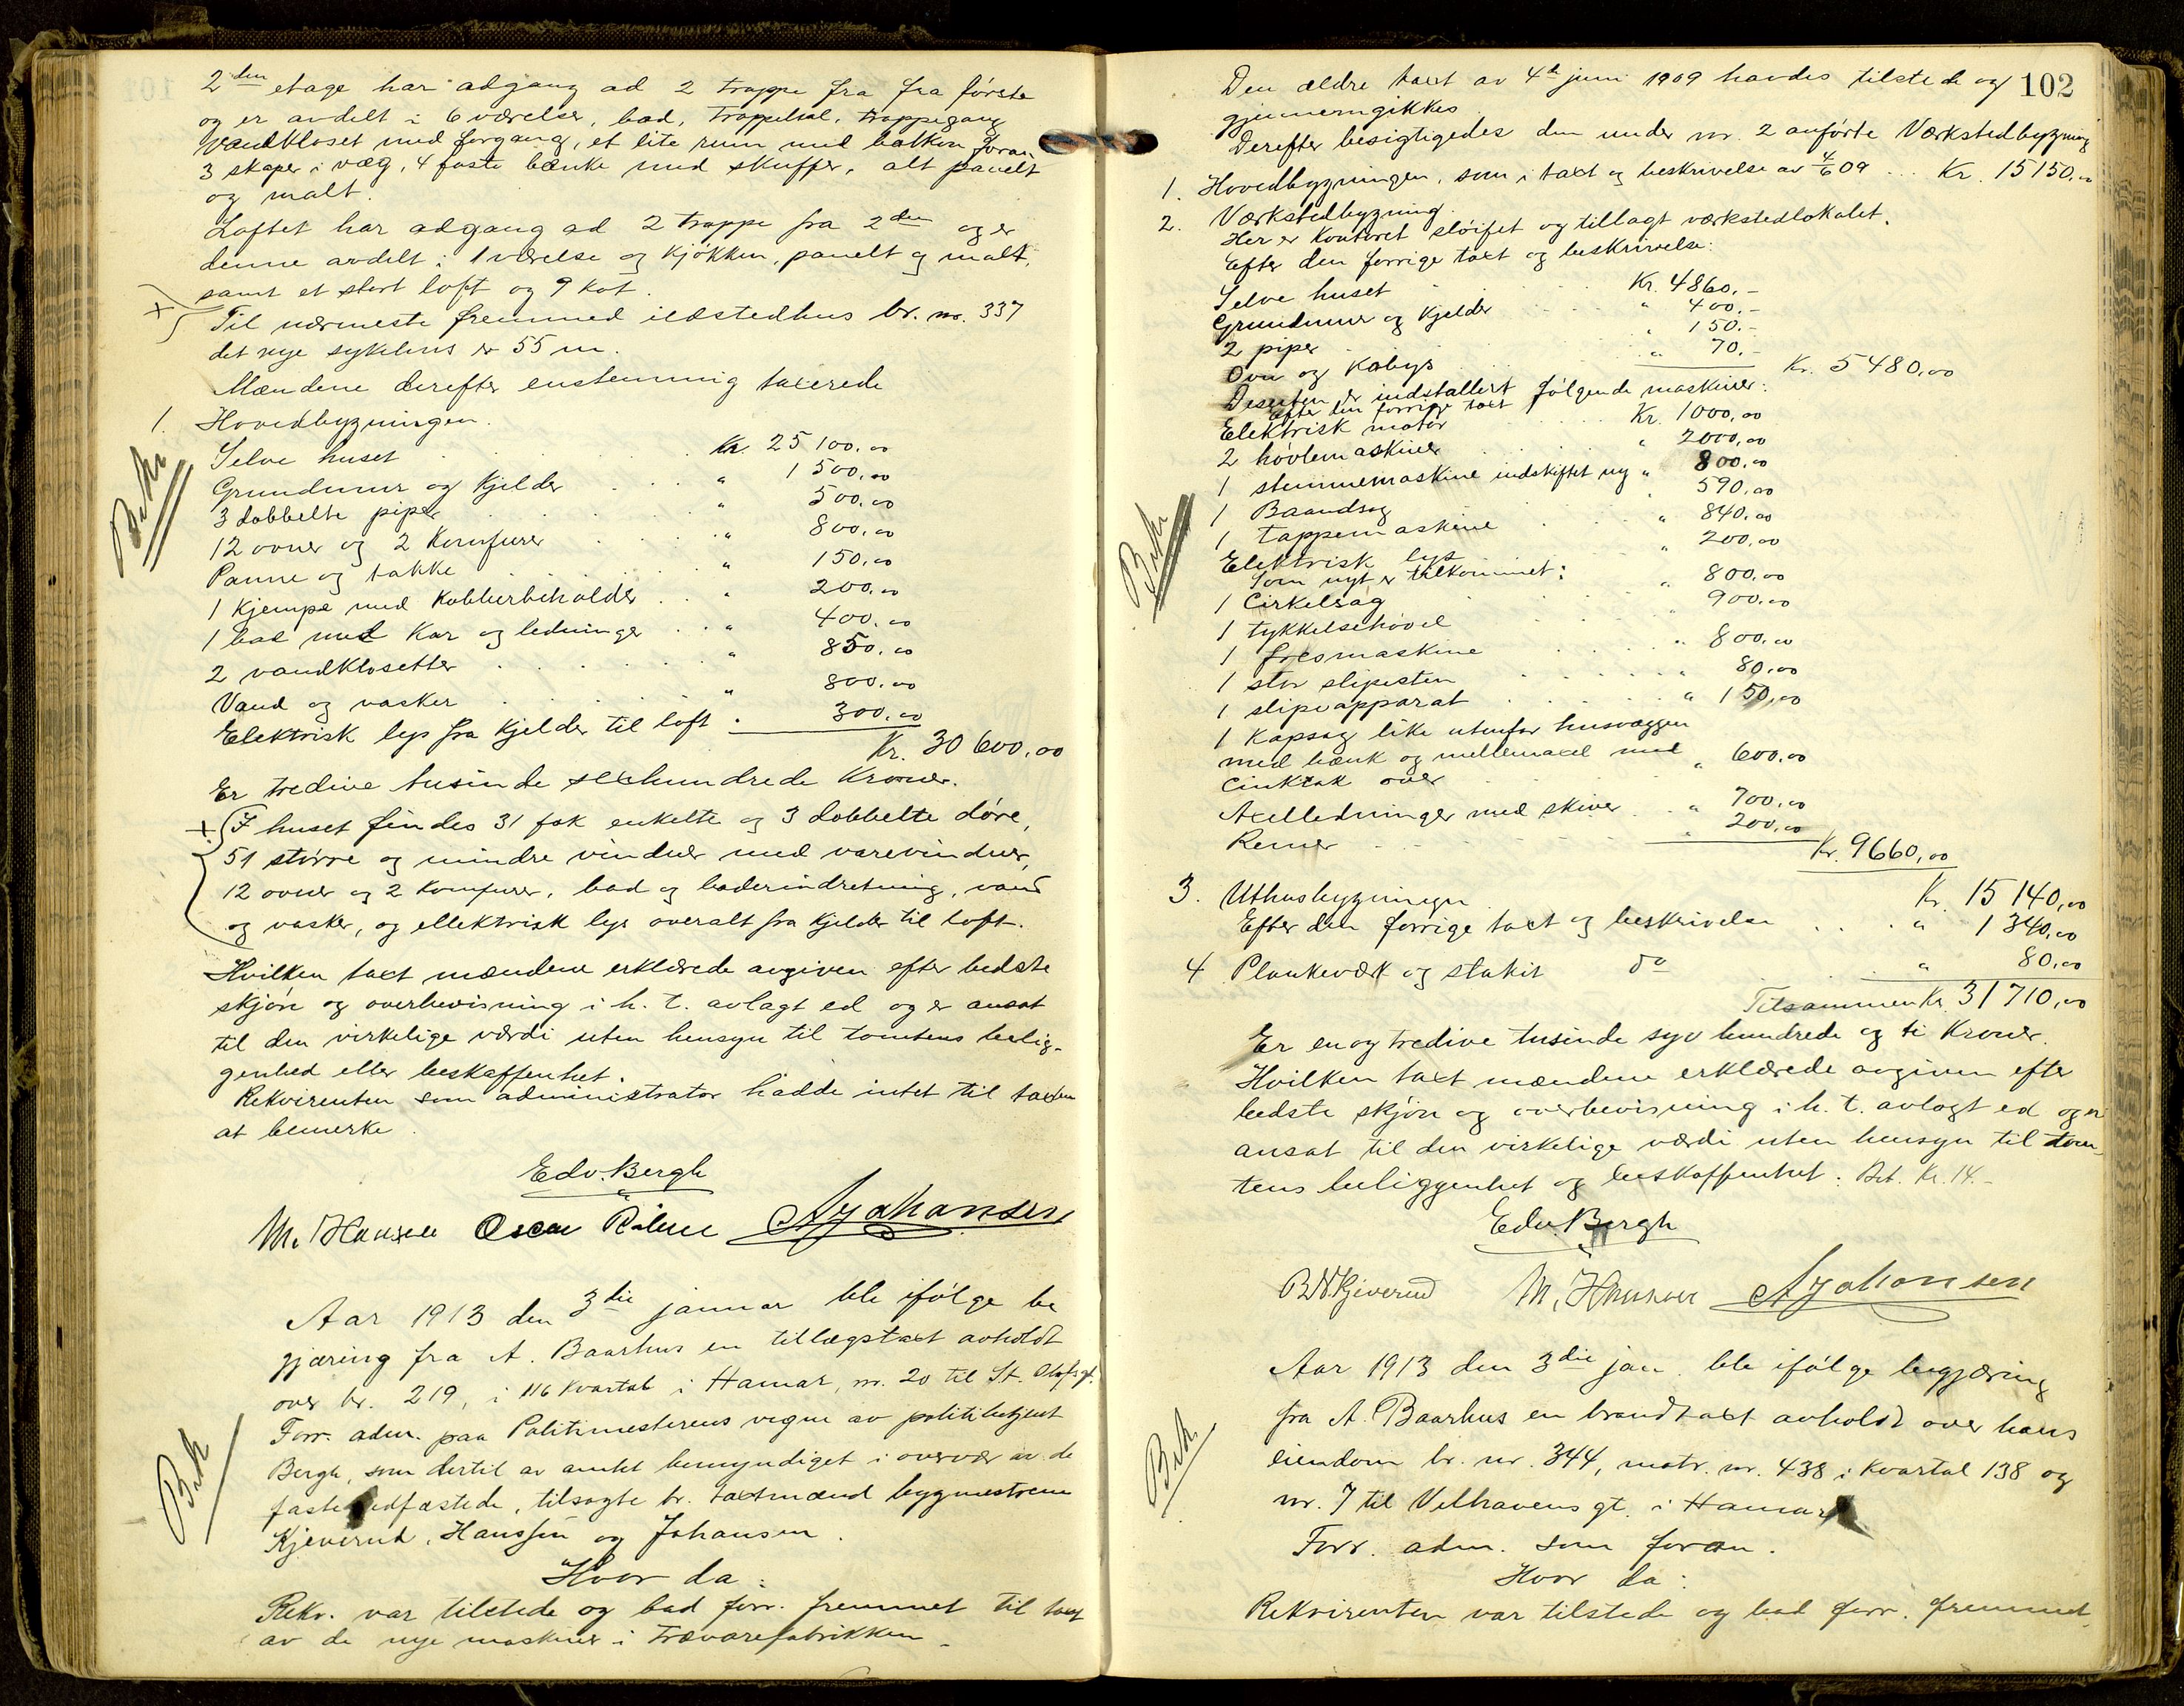 2den etage har adgang ad 2 trappe fra fra første
og er avdelt i 6 værelser, bad, trappehal, trappegang
vandkloset med forgang, et lite rum med balkon foran
3 skaper i væg, 4 faste bænke med skuffer, alt panelt
og malt.
Loftet har adgang ad 2 trappe fra 2den og er
denne avdelt i 1 værelse og kjøkken, panelt og malt,
samt et stort loft og 9 kot.
+ Til nærmeste fremmed ildstedhus br. no. 337
det nye sykehus er 55 m.
Mændene derefter enstemmig taxerede
1. Hovedbygningen.
Bet.
Selve huset . . . Kr. 25 100,00
Grundmur og kjelder . . . " 1 500,00
3 dobbelte piper . . . " 500,00
12 ovner og 2 komfurer . . . " 800,00
Panne og takke . . . " 150,00
1 kjempe med kobberbeholder . . " 200,00
1 bad med kar og ledninger . . " 400,00
2 vandklosetter . . . " 850,00
Vand og vasker . . . " 800,00
Elektrisk lys fra kjelder til loft . 300,00
Kr. 30 600,00
Er tredive tusinde sexhundrede kroner.
+ I huset findes 31 fak enkelte og 3 dobbelte døre,
51 større og mindre vinduer med varevinduer,
12 ovner og 2 komfurer, bad og baderindretning, vand
og vasker, og ellektrisk lys overalt fra kjelder til loft.
Hvilken taxt mændene erklærede avgiven efter bedste
skjøn og overbevisning i h. t. avlagt ed og er ansat
til den virkelige værdi uten hensyn til tomtens belig-
genhed eller beskaffenhet.
Rekvirenten som administrator hadde intet til taxten
at bemerke.
Edv. Bergh
M. Hansen Oscar AJohansen
Aar 1913 den 3die januar ble ifølge be
gjæring fra A. Baarhus en tillægstaxt avholdt
over br. 219, i 116 kvartal i Hamar, nr. 20 til St. Olafs gt.
Forr. adm. paa Politimesterens vegne av politibetjent
Bergh, som dertil av amtet bemyndiget i overvær av de
faste edfæstede, tilsagte br. taxtmænd bygmestrene
Kjeverud, Hanssen og Johansen.
Bet
Hvor da:
Rekv. var tilstede og bad forr. fremmet til taxt
av de nye maskiner i Trævarefabrikken.
102
Den ældre taxt av 4de juni 1909 havdes tilstede og
gjennemgikkes
Derefter besigtigedes den under nr. 2 anførte Værkstedbygning
1. Hovedbygningen, som i taxt og beskrivelse av 4/6 09 ... Kr. 15150,00
2. Værkstedbygning.
Her er kontoret sløifet og tillagt værkstedlokalet.
Efter den forrige taxt og beskrivelse:
Selve huset . . . Kr. 4860.-
Grundmur og kjelder . . . " 400.-
2 piper . . . " 150.-
Ovn og kabys . . . " 70.-
Kr. 5 480,00
Desuten er indstallert følgende maskiner:
Efter den forrige taxt
Elektrisk motor . . . Kr. 1000,00
2 høvlemaskiner . . . " 2000,00
1 stemmemaskine indskiftet ny " 800,00
1 Baandsag " 590,00
1 tappemaskine . . . " 840,00
Elektrisk lys " 200,00
Som nyt er tilkommet:
Bet.
1 Cirkelsag . . . " 800,00
1 tykkelsehøvel . . . 900,00
1 fræsmaskine . . . " 800,00
1 stor slipesten . . . " 80,00
1 slipeapparat . . . " 150,00
1 Kapsag like utenfor husvæggen
med bænk og mellemaxel med
cinktak over . . . " 600,00
Axelledninger med skiver . . " 700,00
Remer . . . " 200,00
Kr. 9660,00
Kr. 15 140,00
3. Uthusbygningen
Efter den forrige taxt og beskrivelse . . . " 1 340,00
4 Plankeværk og stakit do . . . " 80,00
Tilsammen Kr. 31 710,00
Er en og tredive tusinde syv hundrede og ti Kroner.
Hvilken taxt mændene erklærede avgiven efter
bedste skjøn og overbevisning i h. t. avlagt ed og er
ansat til den virkelige værdi uten hensyn til tom-
tens beliggenhet og beskaffenhet. Bet. Kr. 14.-
Edv. Bergh
BNKjeverud M. Hansen AJohansen
Aar 1913 den 3die jan. ble ifølge begjæring
fra A. Baarhus en brandtaxt avholdt over hans
eiendom br. nr. 344, matr. nr. 438 i kvartal 138 og
nr. 7 til Velhavens gt. i Hamar
Bet.
Forr. adm. som foran.
Hvor da:
Rekvirenten var tilstede og bad forr. fremmet